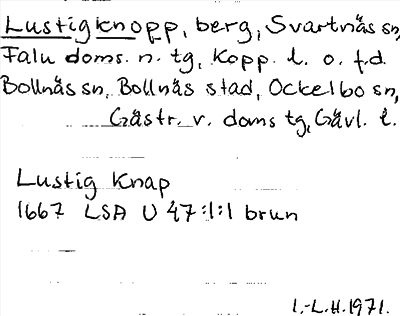 Lustigknopp, berg, Svartnäs sn,
Falu doms. n. tg, Kopp. l. o. f.d.
Bollnäs sn, Bollnäs stad, Ockelbo sn,
Gästr. v. doms tg, Gävl. l.
Lustig Knap
1667 LSA U 47:1:1 brun
I.-L.H. 1971.